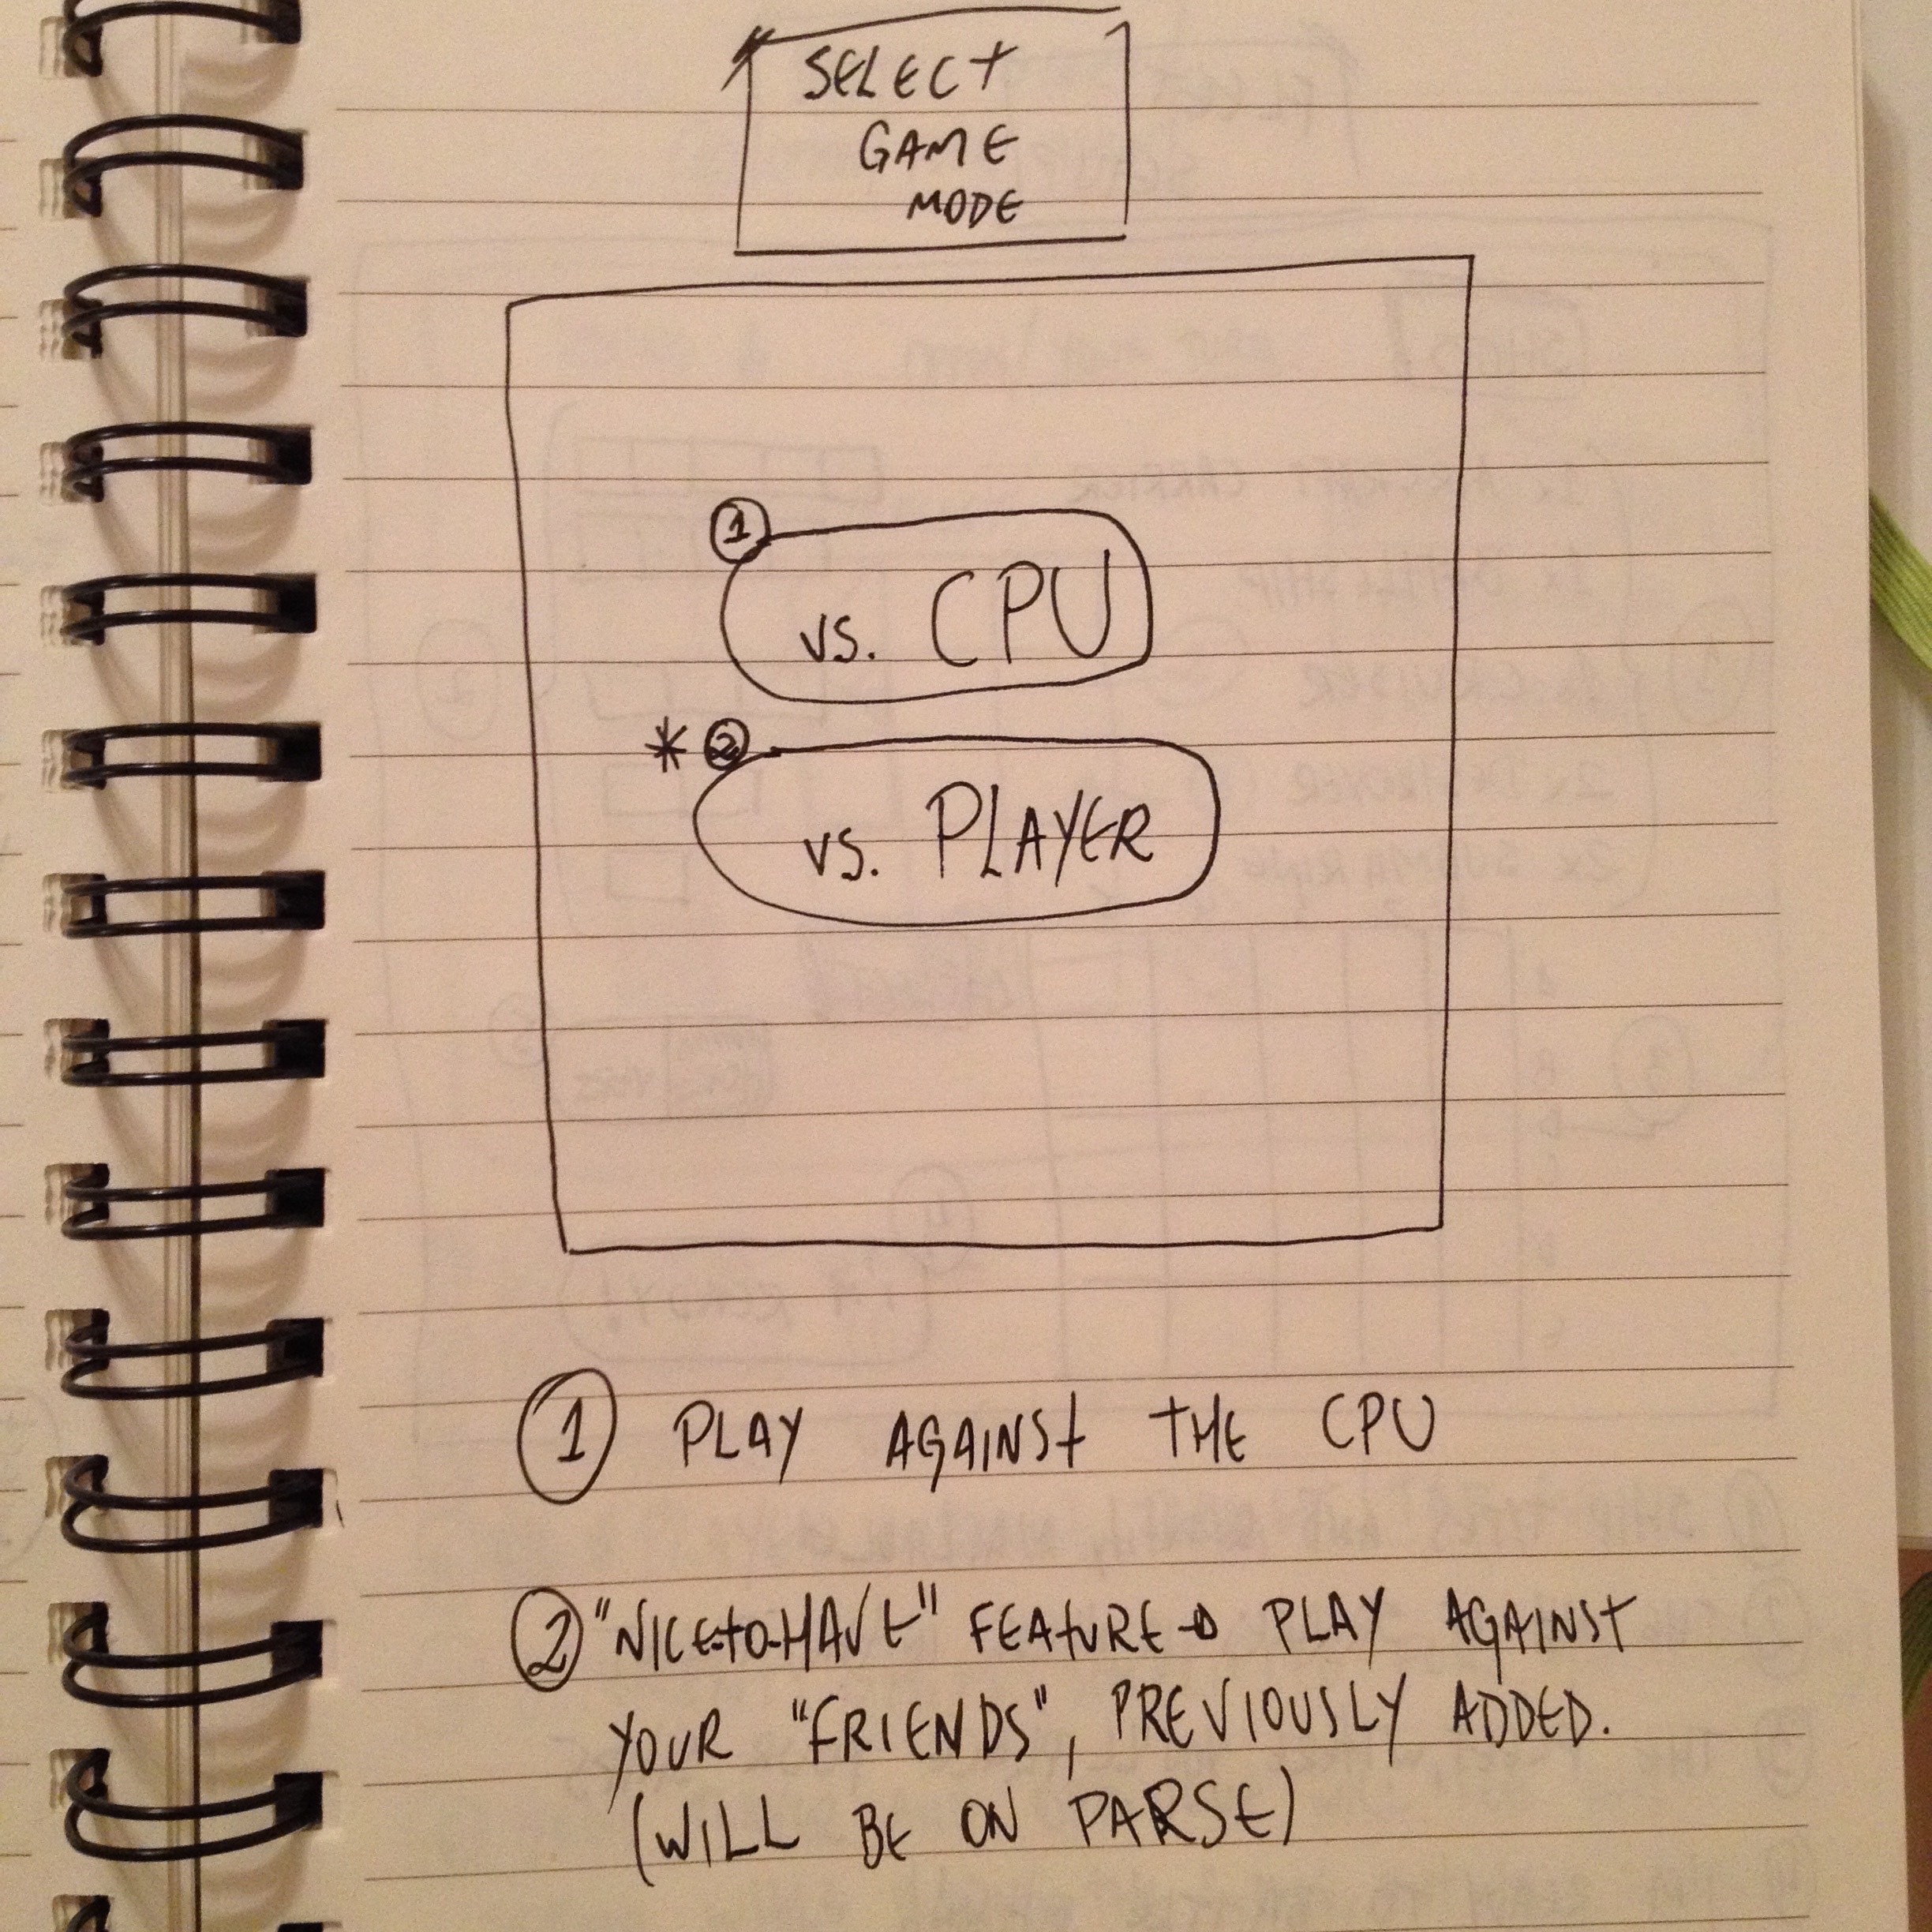 SELECT
GAME
MODE
1
vs. CPU
* 2
vs. PLAYER
1 PLAY AGAINST THE CPU
2 "NICE-TO-HAVE" FEATURE → PLAY AGAINST
YOUR "FRIENDS", PREVIOUSLY ADDED.
(WILL BE ON PARSE)